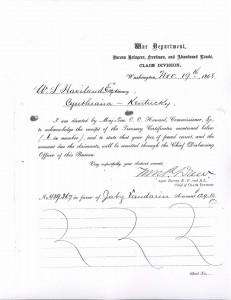 War Department,
Bureau Refugees, Freedmen, and Abandoned Lands,
CLAIM DIVISION,
Washington, Nov 19th 1868
W. S. Haviland Esq
Cynthiana – Kentucky.
I am directed by Maj. Gen. O. O. Howard, Commissioner, &c.,
to acknowledge the receipt of the Treasury Certificates mentioned below
in number), and to state that your fees, if found correct, and the
amount due the claimants, will be remitted through the Chief Disbursing
Officer of this Bureau.
Very respectfully, your obedient servant,
Chief of Claim Division
No. 489,367 in favor of Jaby Vandarin Amount